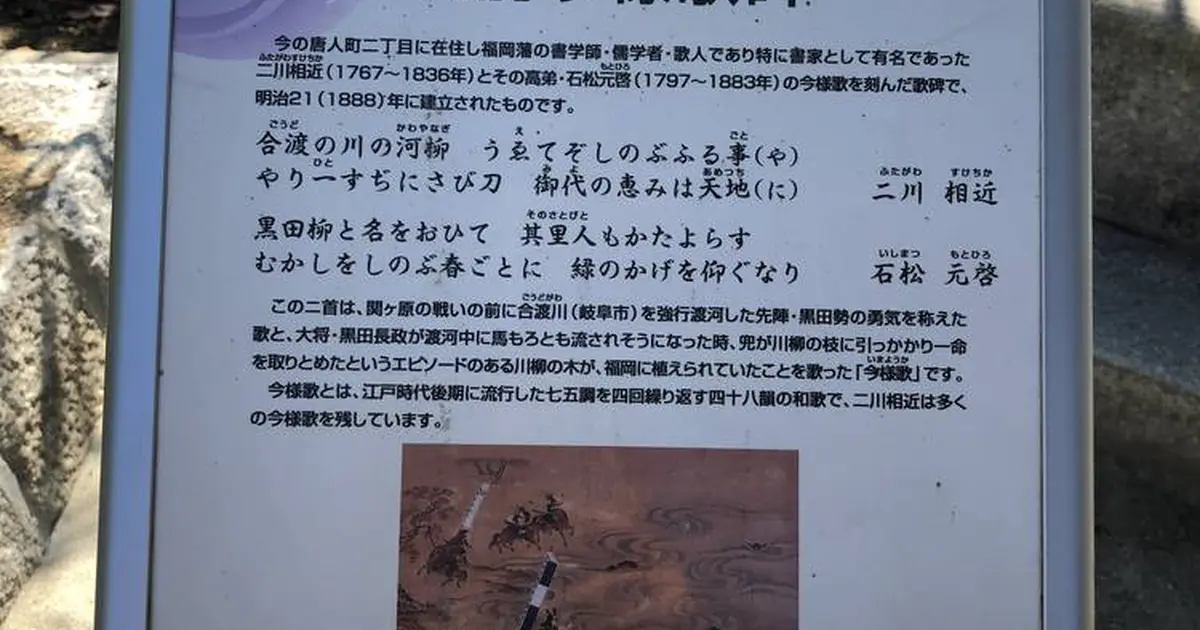 今の唐人町二丁目に在住し福岡藩の書学師・儒学者・歌人であり特に書家として有名であった
ふたがわすけちか もとひろ
二川相近(1767〜1836年)とその高弟・石松元啓(1797〜1883年)の今様歌を刻んだ歌碑で、
明治21(1888)年に建立されたものです。
ごうど かわやなぎ え ごと
合渡の川の河柳 うゑてぞしのぶふる事(や)
ひと みよ あめつち ふたがわ すけちか
やり一すぢにさび刀 御代の恵みは天地(に) 二川 相近
そのさとびと
黒田柳と名をおひて 其里人もかたよらす
いしまつ もとひろ
むかしをしのぶ春ごとに 緑のかげを仰ぐなり 石松 元啓
ごうどがわ
この二首は、関ヶ原の戦いの前に合渡川(岐阜市)を強行渡河した先陣・黒田勢の勇気を称えた
歌と、大将・黒田長政が渡河中に馬もろとも流されそうになった時、兜が川柳の枝に引っかかり一命
いまようか
を取りとめたというエピソードのある川柳の木が、福岡に植えられていたことを歌った「今様歌」です。
今様歌とは、江戸時代後期に流行した七五調を四回繰り返す四十八韻の和歌で、二川相近は多く
の今様歌を残しています。